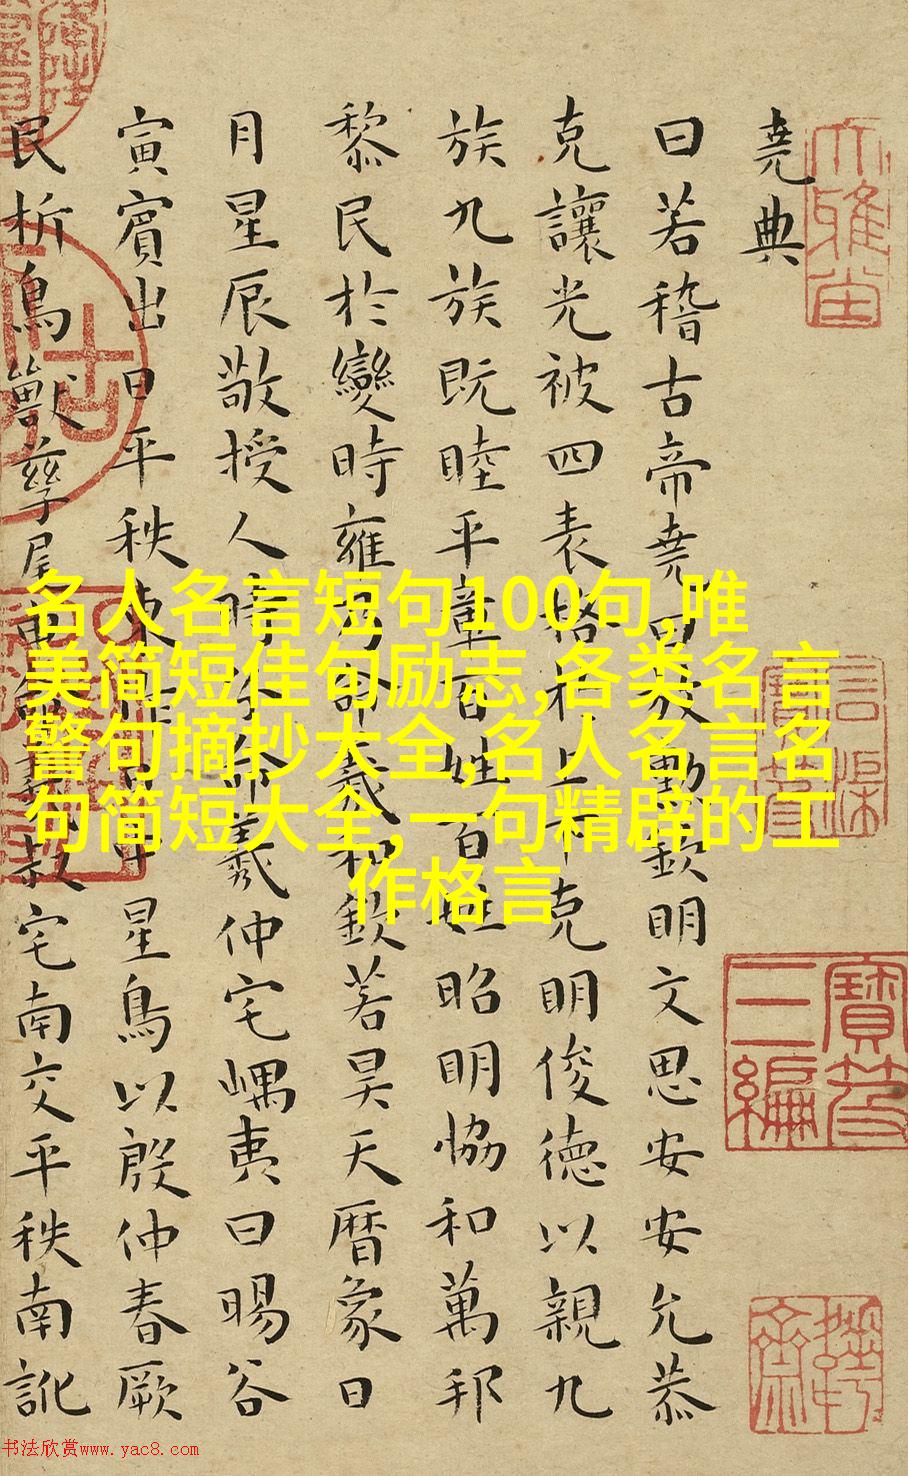 堯典
曰若稽古帝堯曰放勳欽明文思安安允恭
克讓光被四表格于上下克明俊德以親九
族九族既睦平章百姓百姓昭明恊和萬邦
黎民於變時雍乃命羲和欽若昊天曆象日
月星辰敬授人時分命羲仲宅嵎夷曰暘谷
寅賓出日平秩東作日中星鳥以殷仲春厥
民析鳥獸孳尾申命羲叔宅南交平秩南訛
名人名言短句100句,唯
美简短佳句励志,各类名言
警句摘抄大全,名人名言名
句简短大全,一句精辟的工
作格言
寶笈
三編
书法欣赏www.yac8.com